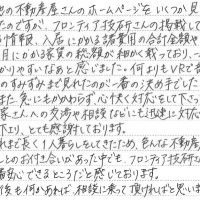 の不動産屋さんのホームページを いつか見
たのですが、フロンティア技研さんの掲載して
情報、入居にかかる諸費用の合計金額や
月にかかる家賃の総額が細かく載っており、一
かりやすいなあと感じました。何よりもVRで
のすみずみまで見れたのが一番の決め手でし
また急にもかかわらず、心快く対応をして下さっ
家さんへの交渉や相談などにも迅速に対応
下より、とても感謝しております。
れまで長く1人暮らしをしてきたため、色んな不動産
とのお付き合いがあった中でも、フロンティア技研さ
番安心できるところだと感じております。
後も何かあれば、相談に乗って頂ければと思いま